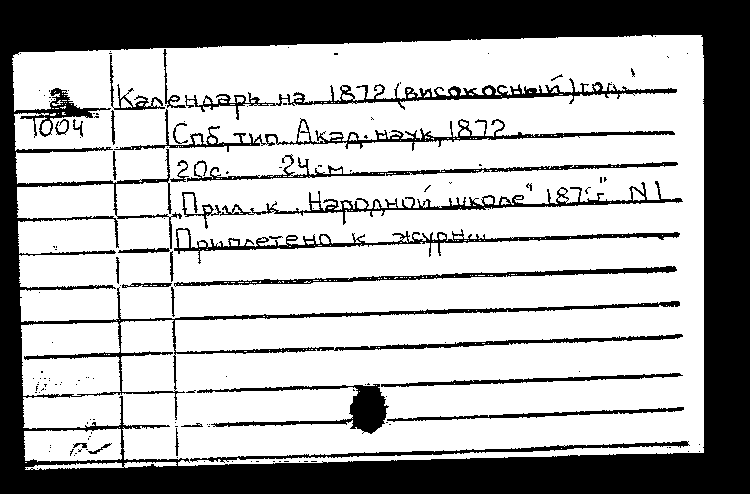 Календарь на 1872 (високосный) год.
1004
Спб, тип. Акад. наук, 1872.
20с. 24см.
"Прил. к "Народной школе" N1
Приплетено к журн...
2